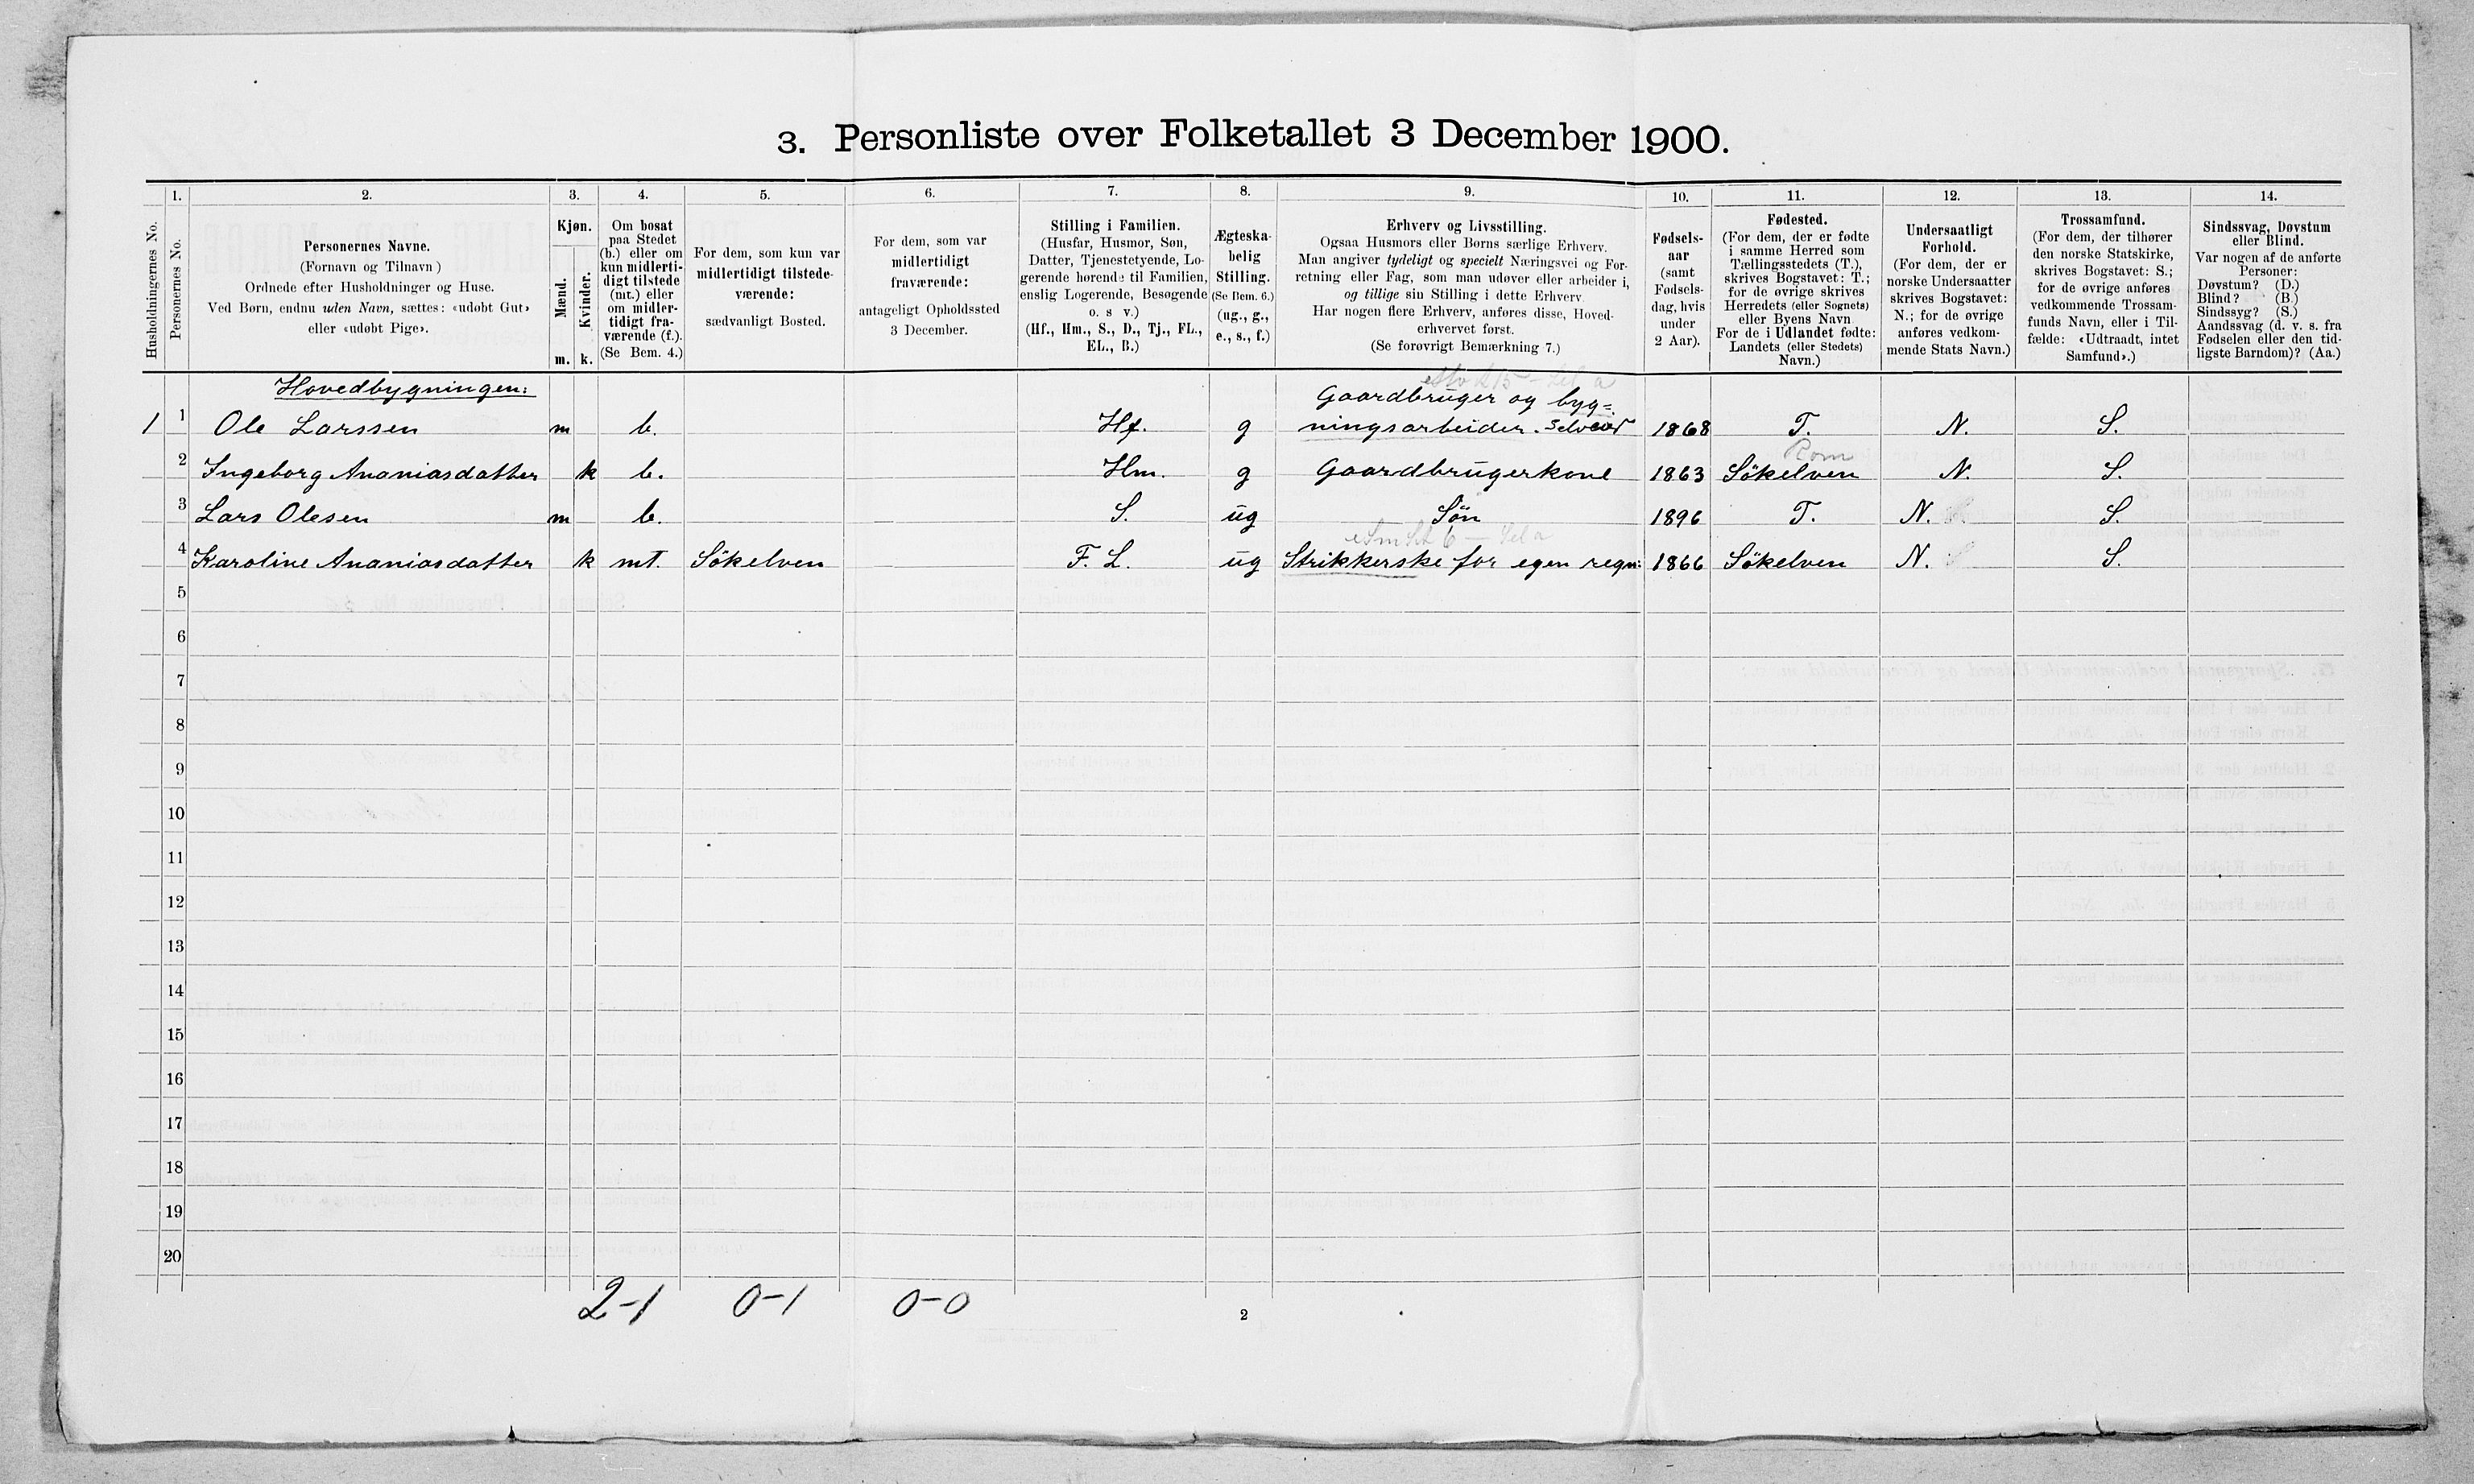 3. Personliste over Folketallet 3 December 1900.
1. 2. 3. 4. 5. 6. 7. 8. 9. 10. 11. 12. 13. 14.
Husholdningernes No.
Personernes No.
Personernes Navne.
(Fornavn og Tilnavn)
Ordnede efter Husholdninger og Huse.
Ved Børn, endnu uden Navn, sættes: «udøbt Gut»
eller «udøbt Pige».
Kjøn.
Mænd.
Kvinder.
m. k.
Om bosat
paa Stedet
(b.) eller om
kun midlerti-
digt tilstede
(mt.) eller
om midler-
tidigt fra-
værende (f.).
(Se Bem. 4.)
For dem, som kun var
midlertidigt tilstede-
værende:
sædvanligt Bosted.
For dem, som var
midlertidigt
fraværende:
antageligt Opholdssted
3 December.
Stilling i Familien.
(Husfar, Husmor, Søn,
Datter, Tjenestetyende, Lo-
gerende hørende til Familien,
enslig Logerende, Besøgende
o. s v.)
(Hf., Hm., S., D., Tj., FL.,
EL., B.)
Ægteska-
belig
Stilling.
(Se Bem. 6.)
(ug., g.,
e., s., f.)
Erhverv og Livsstilling.
Ogsaa Husmors eller Børns særlige Erhverv.
Man angiver tydeligt og specielt Næringsvei og For-
retning eller Fag, som man udøver eller arbeider i,
og tillige sin Stilling i dette Erhverv.
Har nogen flere Erhverv, anføres disse, Hoved-
erhvervet først.
(Se forøvrigt Bemærkning 7.)
Fødsels-
aar
(samt
Fødsels-
dag, hvis
under
2 Aar).
Fødested.
(For dem, der er fødte
i samme Herred som
Tællingsstedets (T.),
skrives Bogstavet: T.;
for de øvrige skrives
Herredets (eller Sognets)
eller Byens Navn
For de i Udlandet fødte:
Landets (eller Stedets)
Navn.)
Undersaatligt
Forhold.
(For dem, der er
norske Undersaatter
skrives Bogstavet:
N.; for de øvrige
anføres vedkom-
mende Stats Navn.)
Trossamfund.
(For dem, der tilhører
den norske Statskirke,
skrives Bogstavet: S.;
for de øvrige anføres
vedkommende Trossam-
funds Navn, eller i Til-
fælde: «Udtraadt, intet
Samfund».)
Sindssvag, Døvstum
eller Blind.
Var nogen af de anførte
Personer:
Døvstum? (D.)
Blind? (B.)
Sindssyg? (S.)
Aandssvag (d. v. s. fra
Fødselen eller den tid-
ligste Barndom)? (Aa.)
Hovedbygningen:
Gaardbruger og byg=
1 1 Ole Larssen m b. Hf. g ningsarbeider. Selveier 1868 T. N. S.
Rom
2 Ingeborg Ananiasdatter k b. Hm. g Gaardbrugerkone 1863 Sökelven N. S.
3 Lars Olesen m b. S. ug Sön 1896 T. N. S.
4 Karoline Ananiasdatter k mt. Sökelven F. L. ug Strikkerske for egen regn: 1866 Sökelven N. S.
5
6
7
8
9
10
11
12
13
14
15
16
17
18
19
20
2-1 0-1 0-0
2